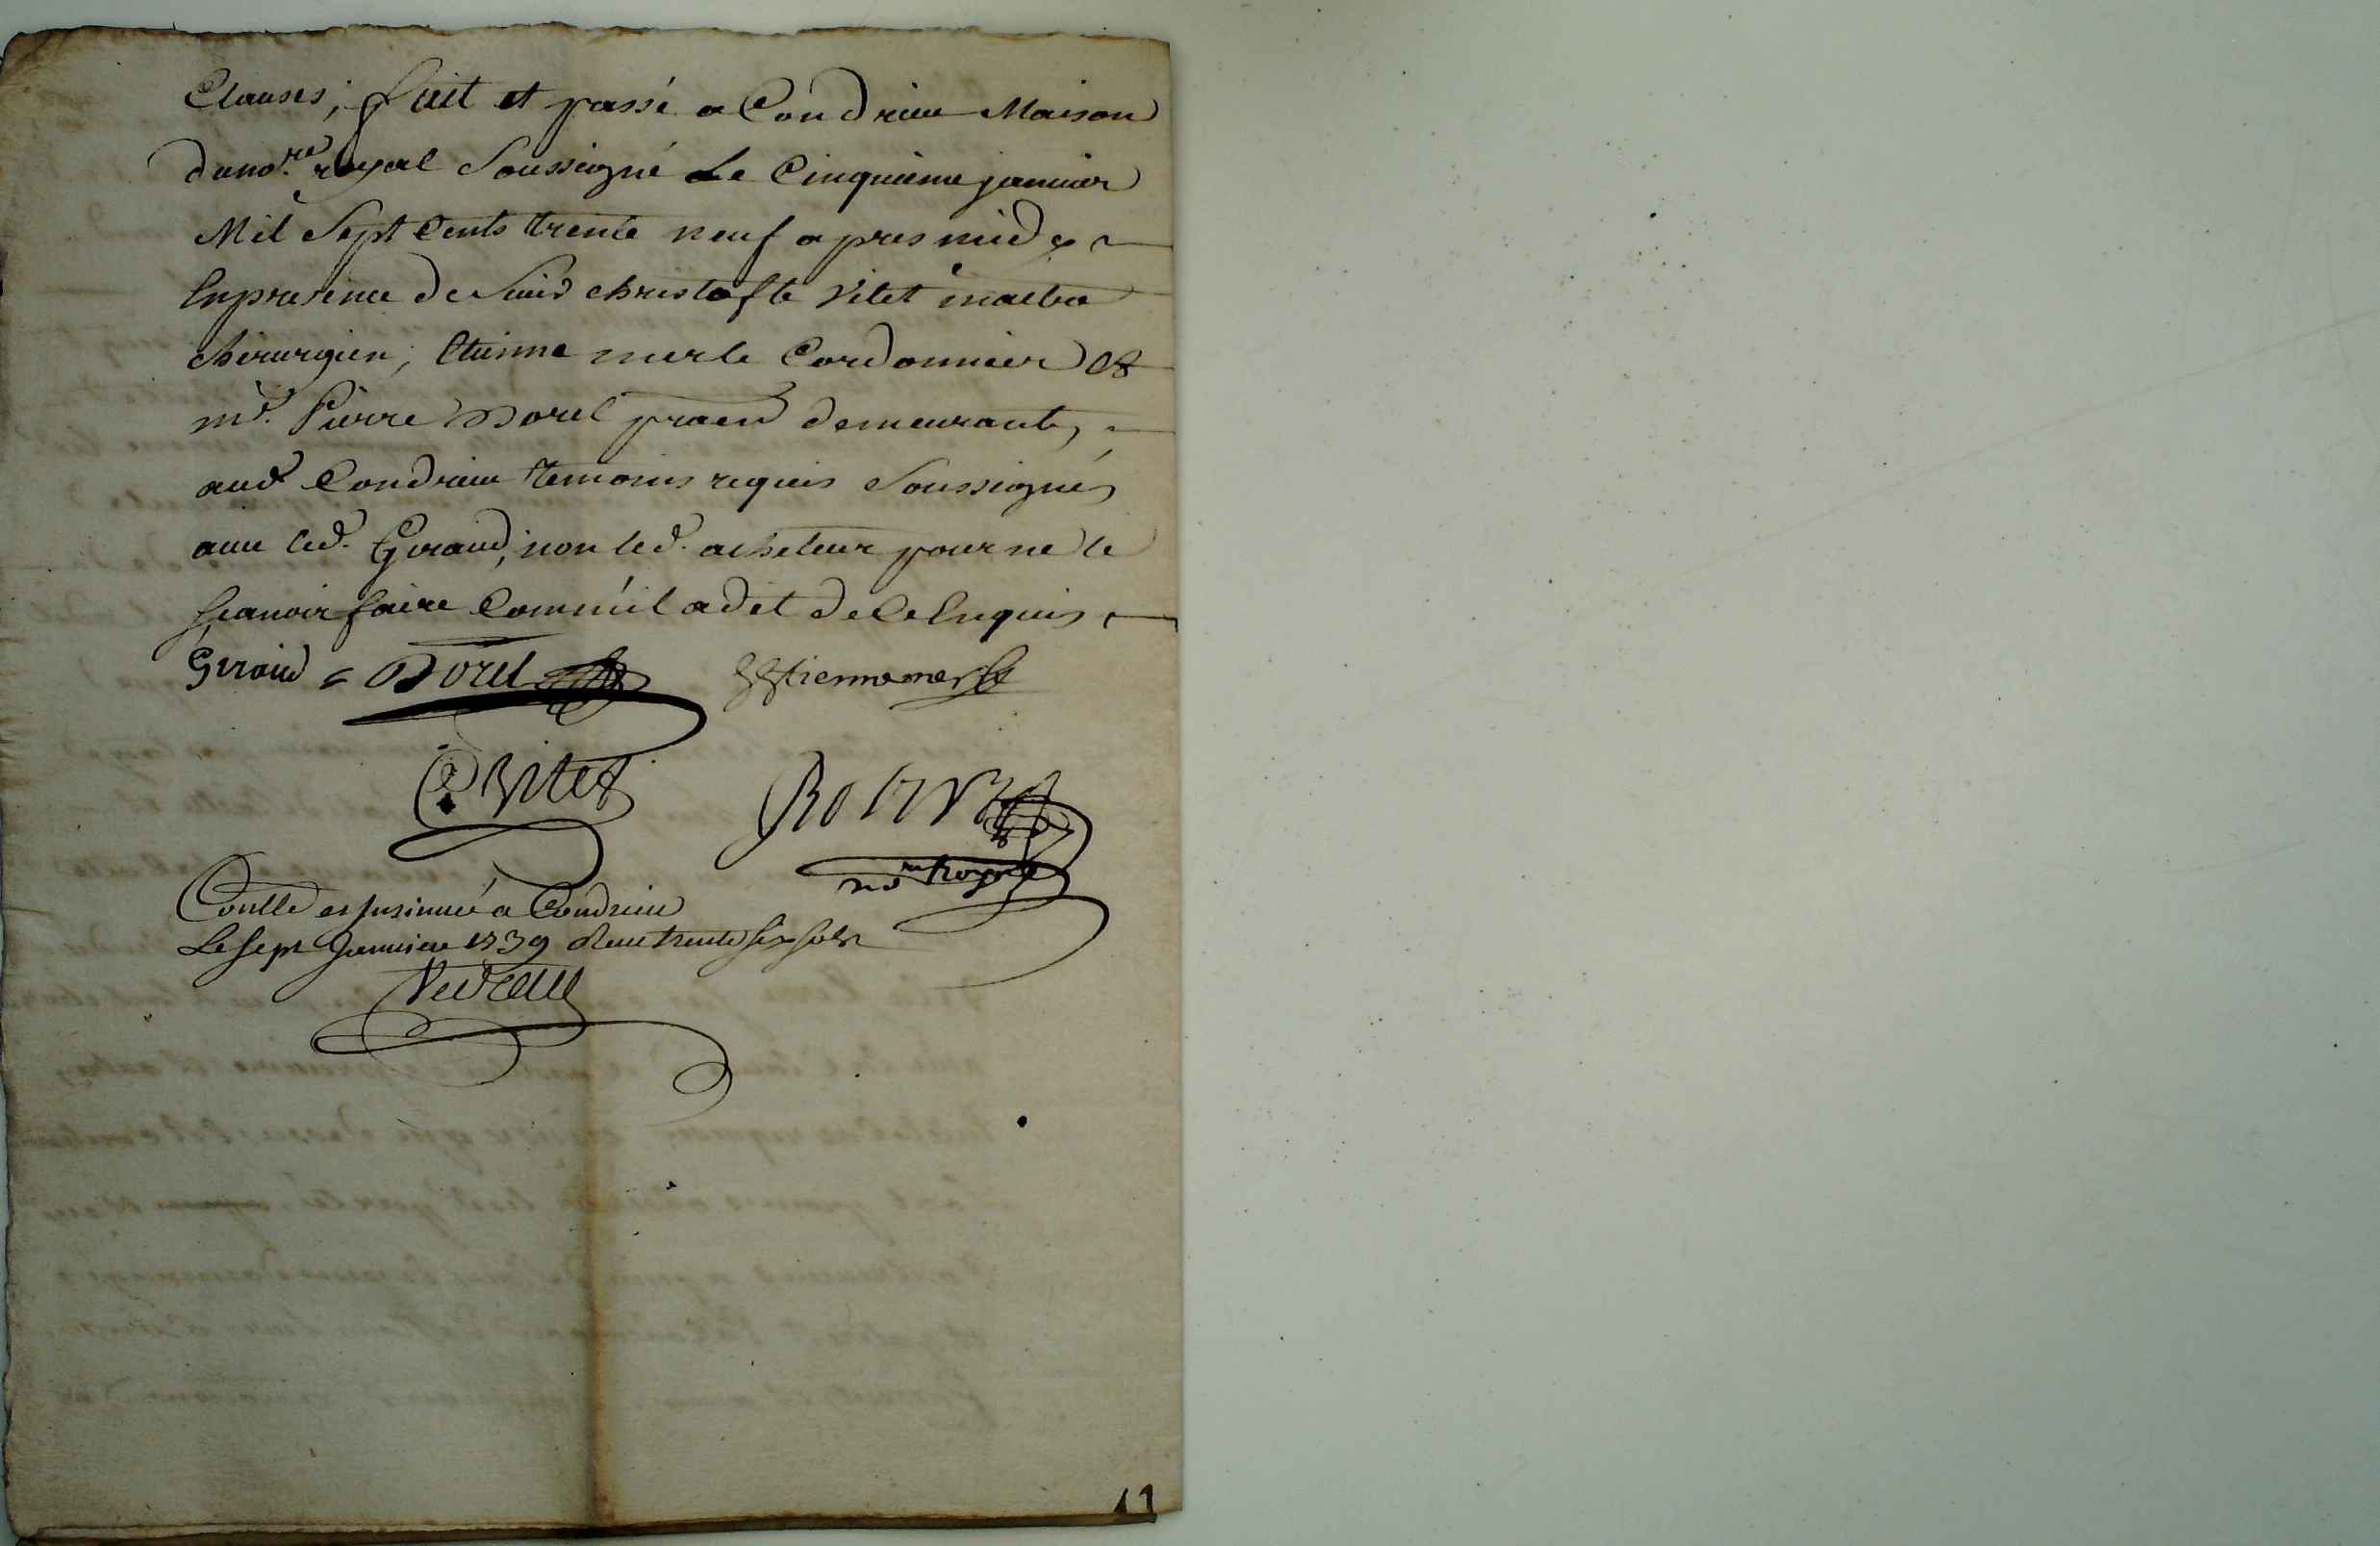 Clauses; fait et passé a Condrieu Maison
du no.re royal Soussigné Le Cinquieme janvier
Mil Sept Cents trente neuf apres midy
En presence de Sieur christofle Vitet maitre
chirurgien, Etienne merle Cordonnier et
m.e Pierre Borel praen demeurants
aud Condrieu temoins requis Soussignés
avec led. Giraud, non led. acheteur pour ne le
scavoir faire Comm'il a dit de ce Enquis
Giraud Borel Estienne merle
C Vitet
no.re Royal
Conllé et Insinué a Condrieu
Le sept Janvier 1739 Reçu trente six sols
11